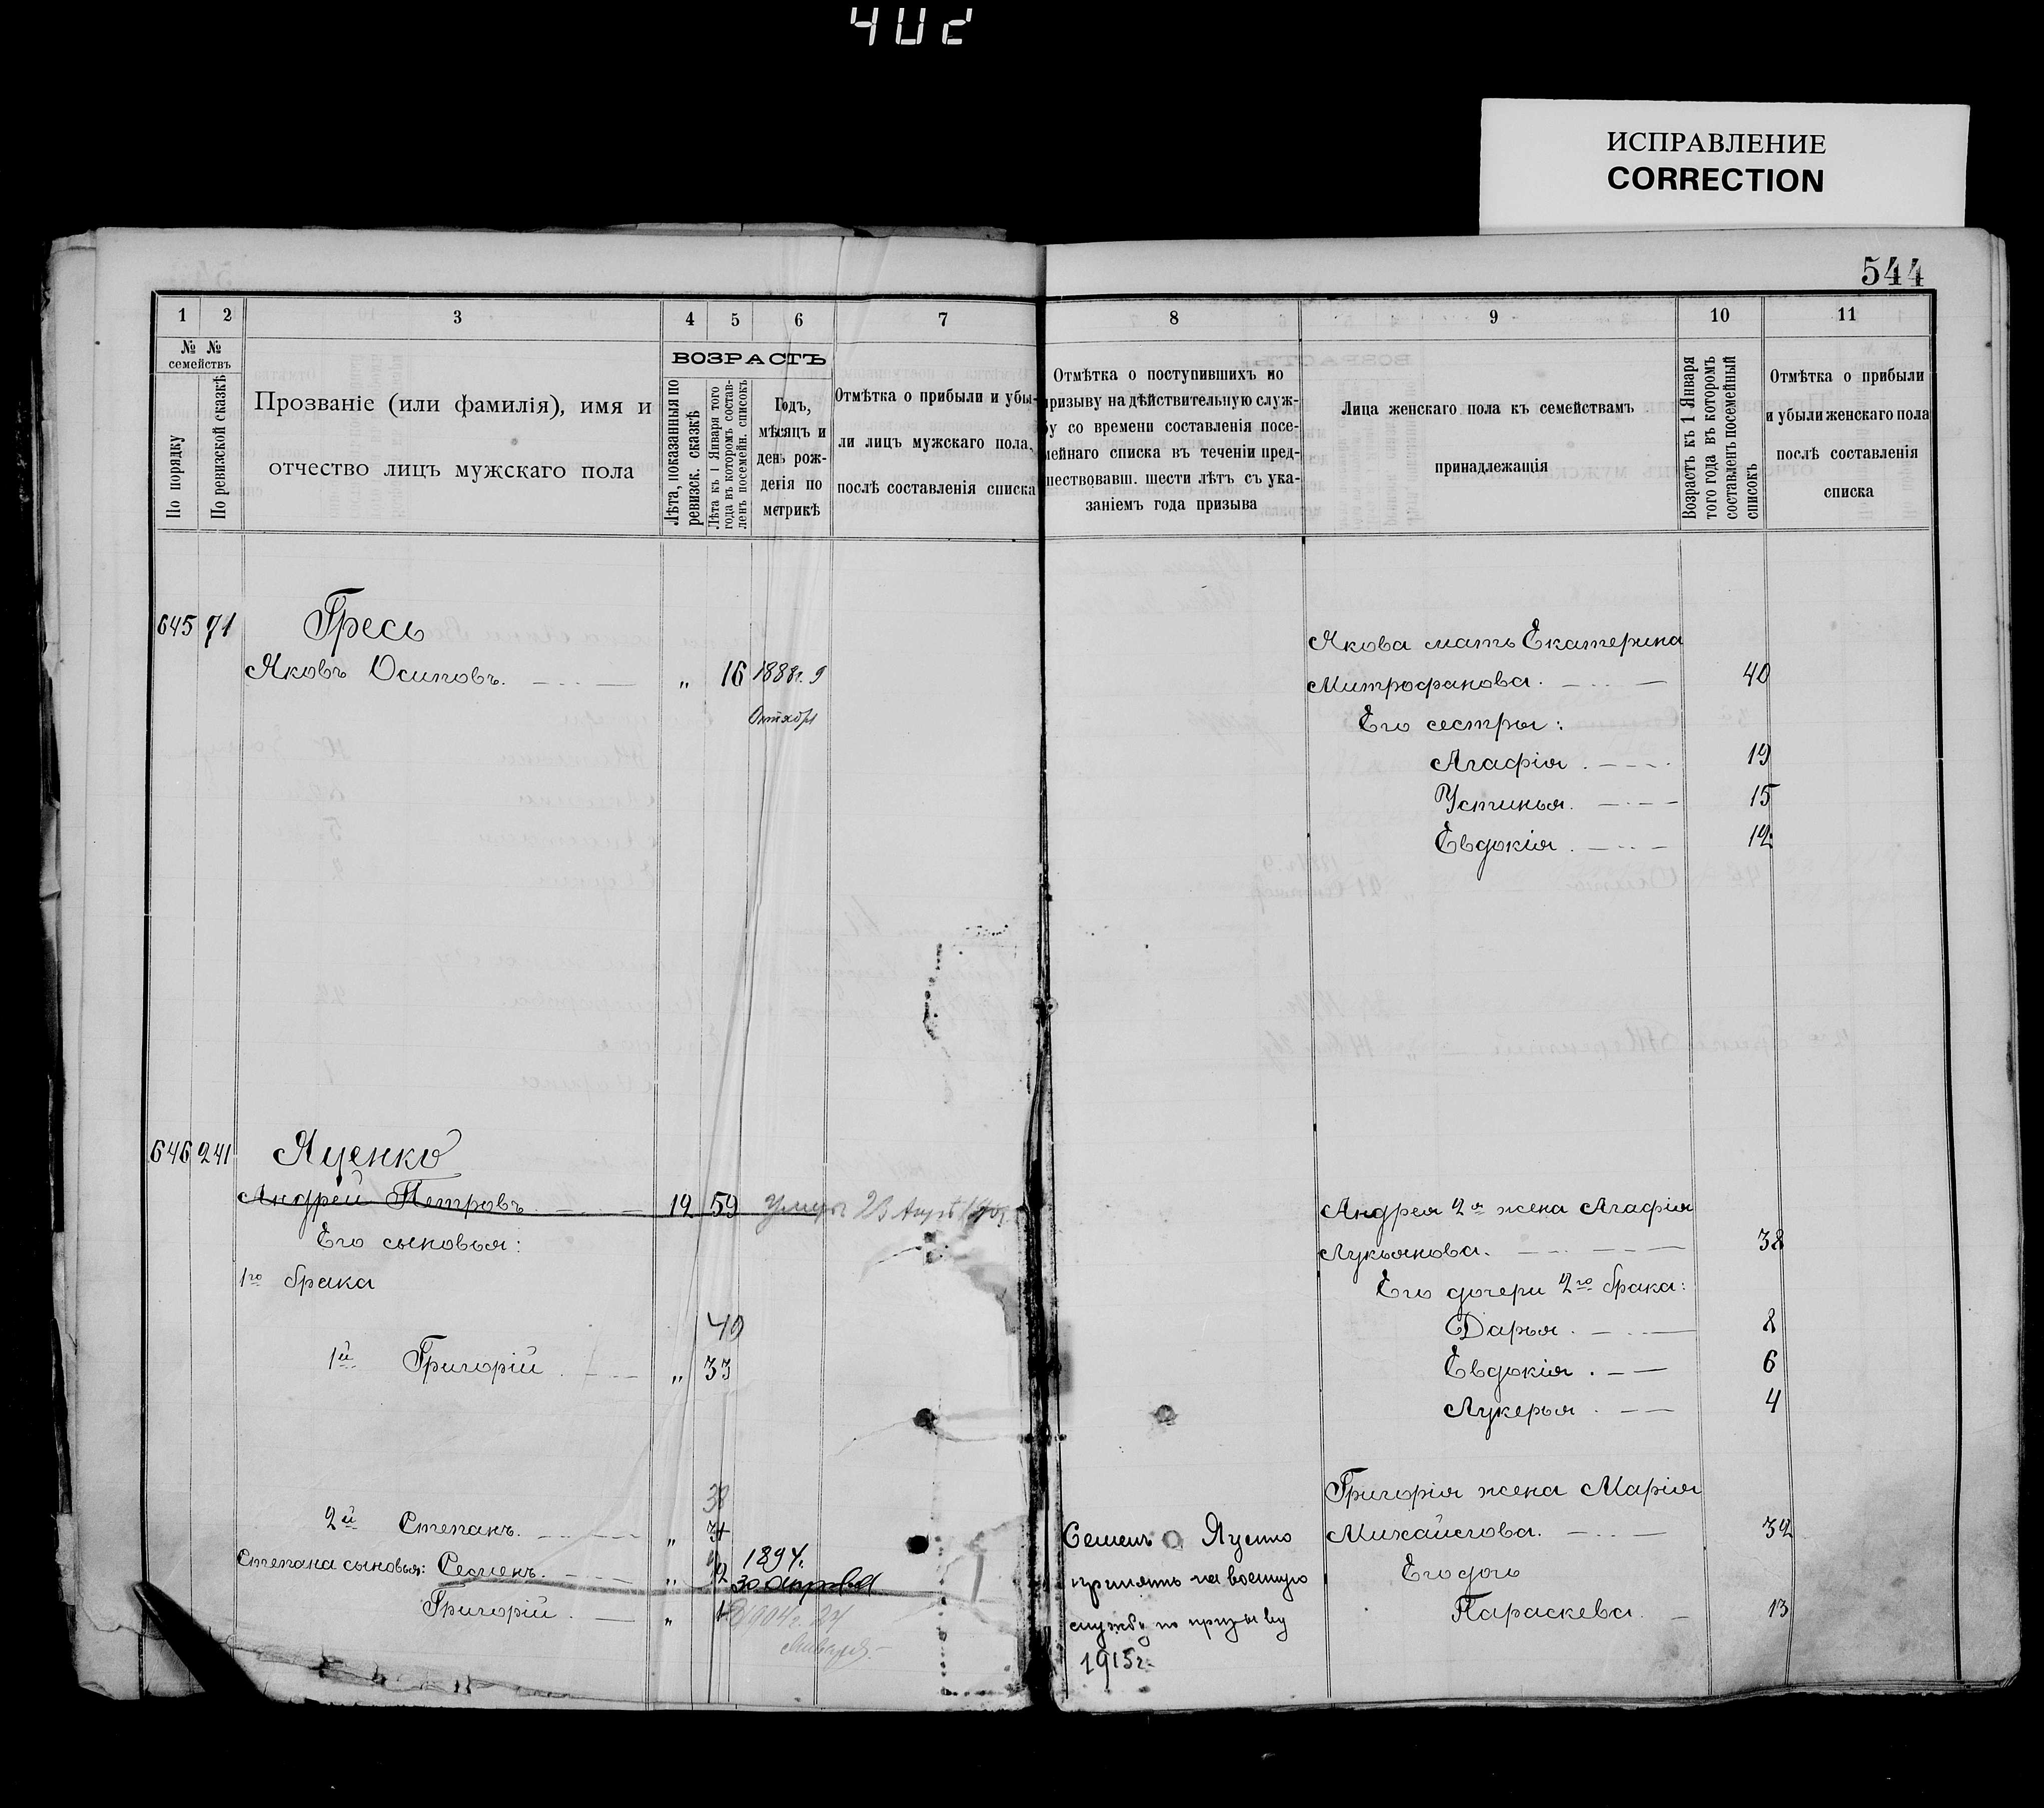 402
ИСПРАВЛЕНИЕ
CORRECTION
544
1 2 3 4 5 6 7 8 9 10 11
№ № семействъ
По порядку
По ревизской сказкѣ
Прозваніе (или фамилія), имя и
отчество лицъ мужскаго пола
ВОЗРАСТЪ
Лѣта, показанныя по
ревизск. сказкѣ
Лѣта къ 1 Января того
года въ которомъ состав-
ленъ посемейн. списокъ
Годъ,
мѣсяцъ и
день рож-
денія по
метрикѣ
Отмѣтка о прибыли и убы-
ли лицъ мужскаго пола,
послѣ составленія списка
Отмѣтка о поступившихъ по
призыву на дѣйствительную служ-
бу со времени составленія посе-
мейнаго списка въ теченіи пред-
шествовавш. шести лѣтъ съ ука-
заніемъ года призыва
Лица женскаго пола къ семействамъ
принадлежащія
Возрастъ къ 1 Января
того года въ которомъ
составленъ посемейный
списокъ
Отмѣтка о прибыли
и убыли женскаго пола
послѣ составленія
списка
645 71 Гресь
Яковъ Осиповъ. „ 16 1888г. 9
Октября
Якова мать Екатерина
Митрофанова. 40
Его сестры:
Агафія 19
Устинья. 15
Евдокія 12
646 241 Яценко
Андрей Петровъ 12 59 умеръ 23
Его сыновья:
1го брака
40
1й Григорій „ 33
38
2й Степанъ. „ 31
Степана сыновья: Семенъ. „ 1894.
30
Григорій „ 1904г. 24
Января
Семенъ Яценко
принятъ на военную
службу по призыву
1915г.
Андрея 2я жена Агафія
Лукьянова. 38
Его дочери 2го брака:
Дарья 8
Евдокія 6
Лукерья 4
Григорія жена Марія
Михайлова. 32
Его дочь
Параскева. 13